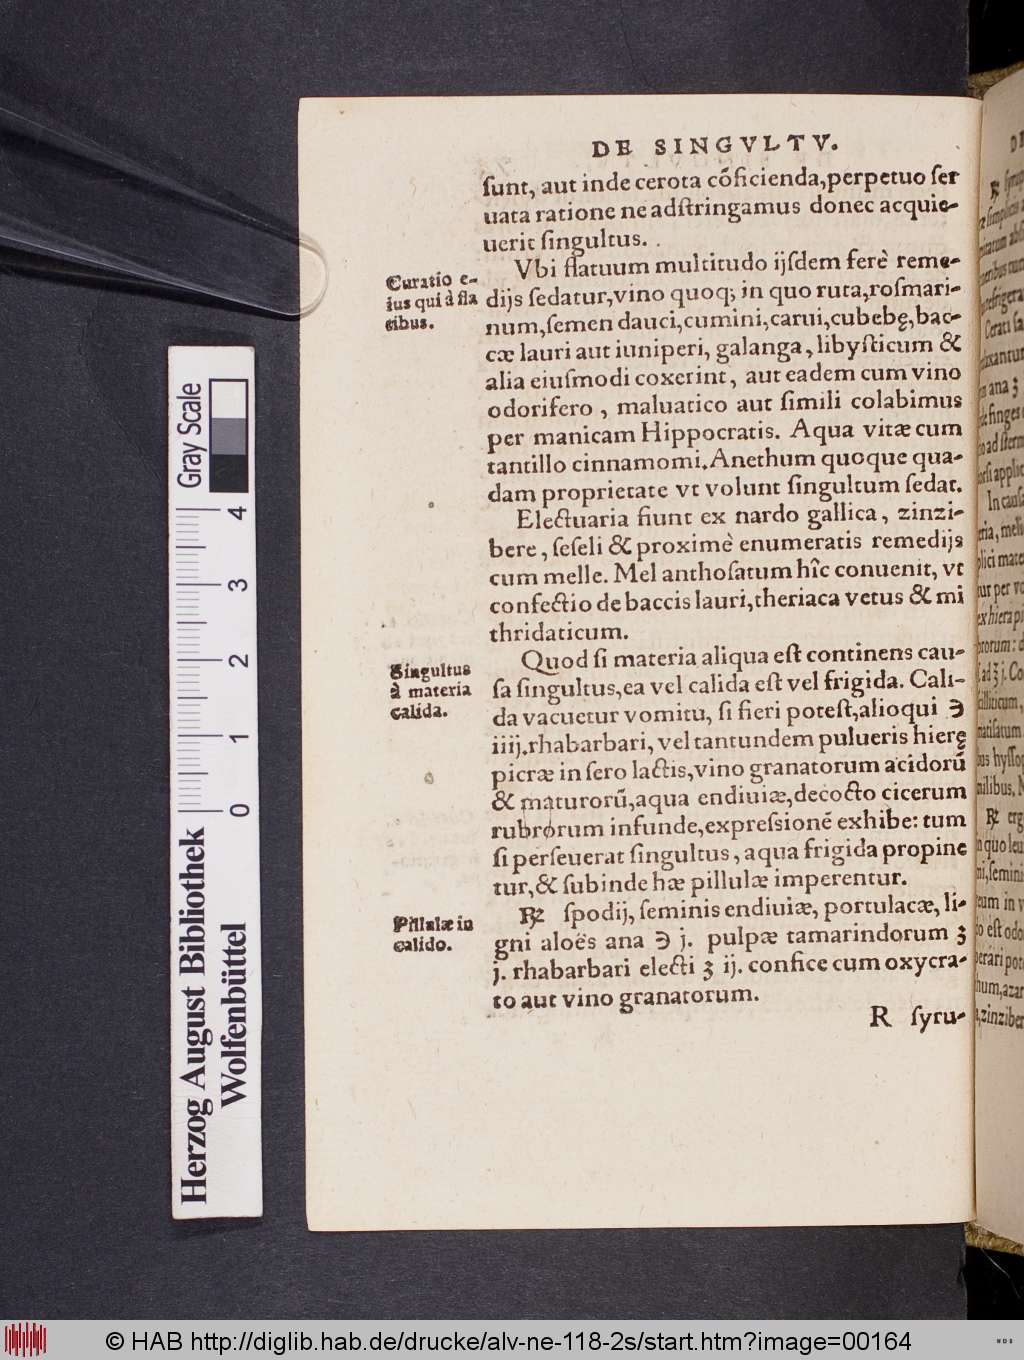 DE SINGVLTV.
ſunt, aut inde cerota cōficienda,perpetuo ſer
uata ratione ne adſtringamus donec acquie-
uerit ſingultus.
Curatio e-
ius qui à fla
tibus.
Vbi flatuum multitudo ijſdem ferè reme-
dijs ſedatur,vino quoq; in quo ruta,roſmari-
num,ſemen dauci,cumini,carui,cubebę,bac-
cæ lauri aut iuniperi, galanga, libyſticum &
alia eiuſmodi coxerint, aut eadem cum vino
odorifero, maluatico aut ſimili colabimus
per manicam Hippocratis. Aqua vitæ cum
tantillo cinnamomi. Anethum quoque qua-
dam proprietate vt volunt ſingultum ſedat.
Electuaria fiunt ex nardo gallica, zinzi-
bere, ſeſeli & proximè enumeratis remedijs
cum melle. Mel anthoſatum hîc conuenit, vt
confectio de baccis lauri,theriaca vetus & mi
thridaticum.
Singultus
à materia
calida.
Quod ſi materia aliqua eſt continens cau-
ſa ſingultus,ea vel calida eſt vel frigida. Cali-
da vacuetur vomitu, ſi fieri poteſt,alioqui ℈
iiij.rhabarbari, vel tantundem pulueris hierę
picræ in ſero lactis,vino granatorum acidorū
& maturorū,aqua endiuiæ,decocto cicerum
rubrorum infunde,expreſsionē exhibe: tum
ſi perſeuerat ſingultus, aqua frigida propine
tur,& ſubinde hæ pillulæ imperentur.
Pillulæ in
calido.
℞ ſpodij, ſeminis endiuiæ, portulacæ, li-
gni aloës ana ℈ j. pulpæ tamarindorum ʒ
j. rhabarbari electi ʒ ij. confice cum oxycra-
to aut vino granatorum.
R ſyru-
Gray Scale
0 1 2 3 4
Herzog August Bibliothek
Wolfenbüttel
© HAB http://diglib.hab.de/drucke/alv-ne-118-2s/start.htm?image=00164